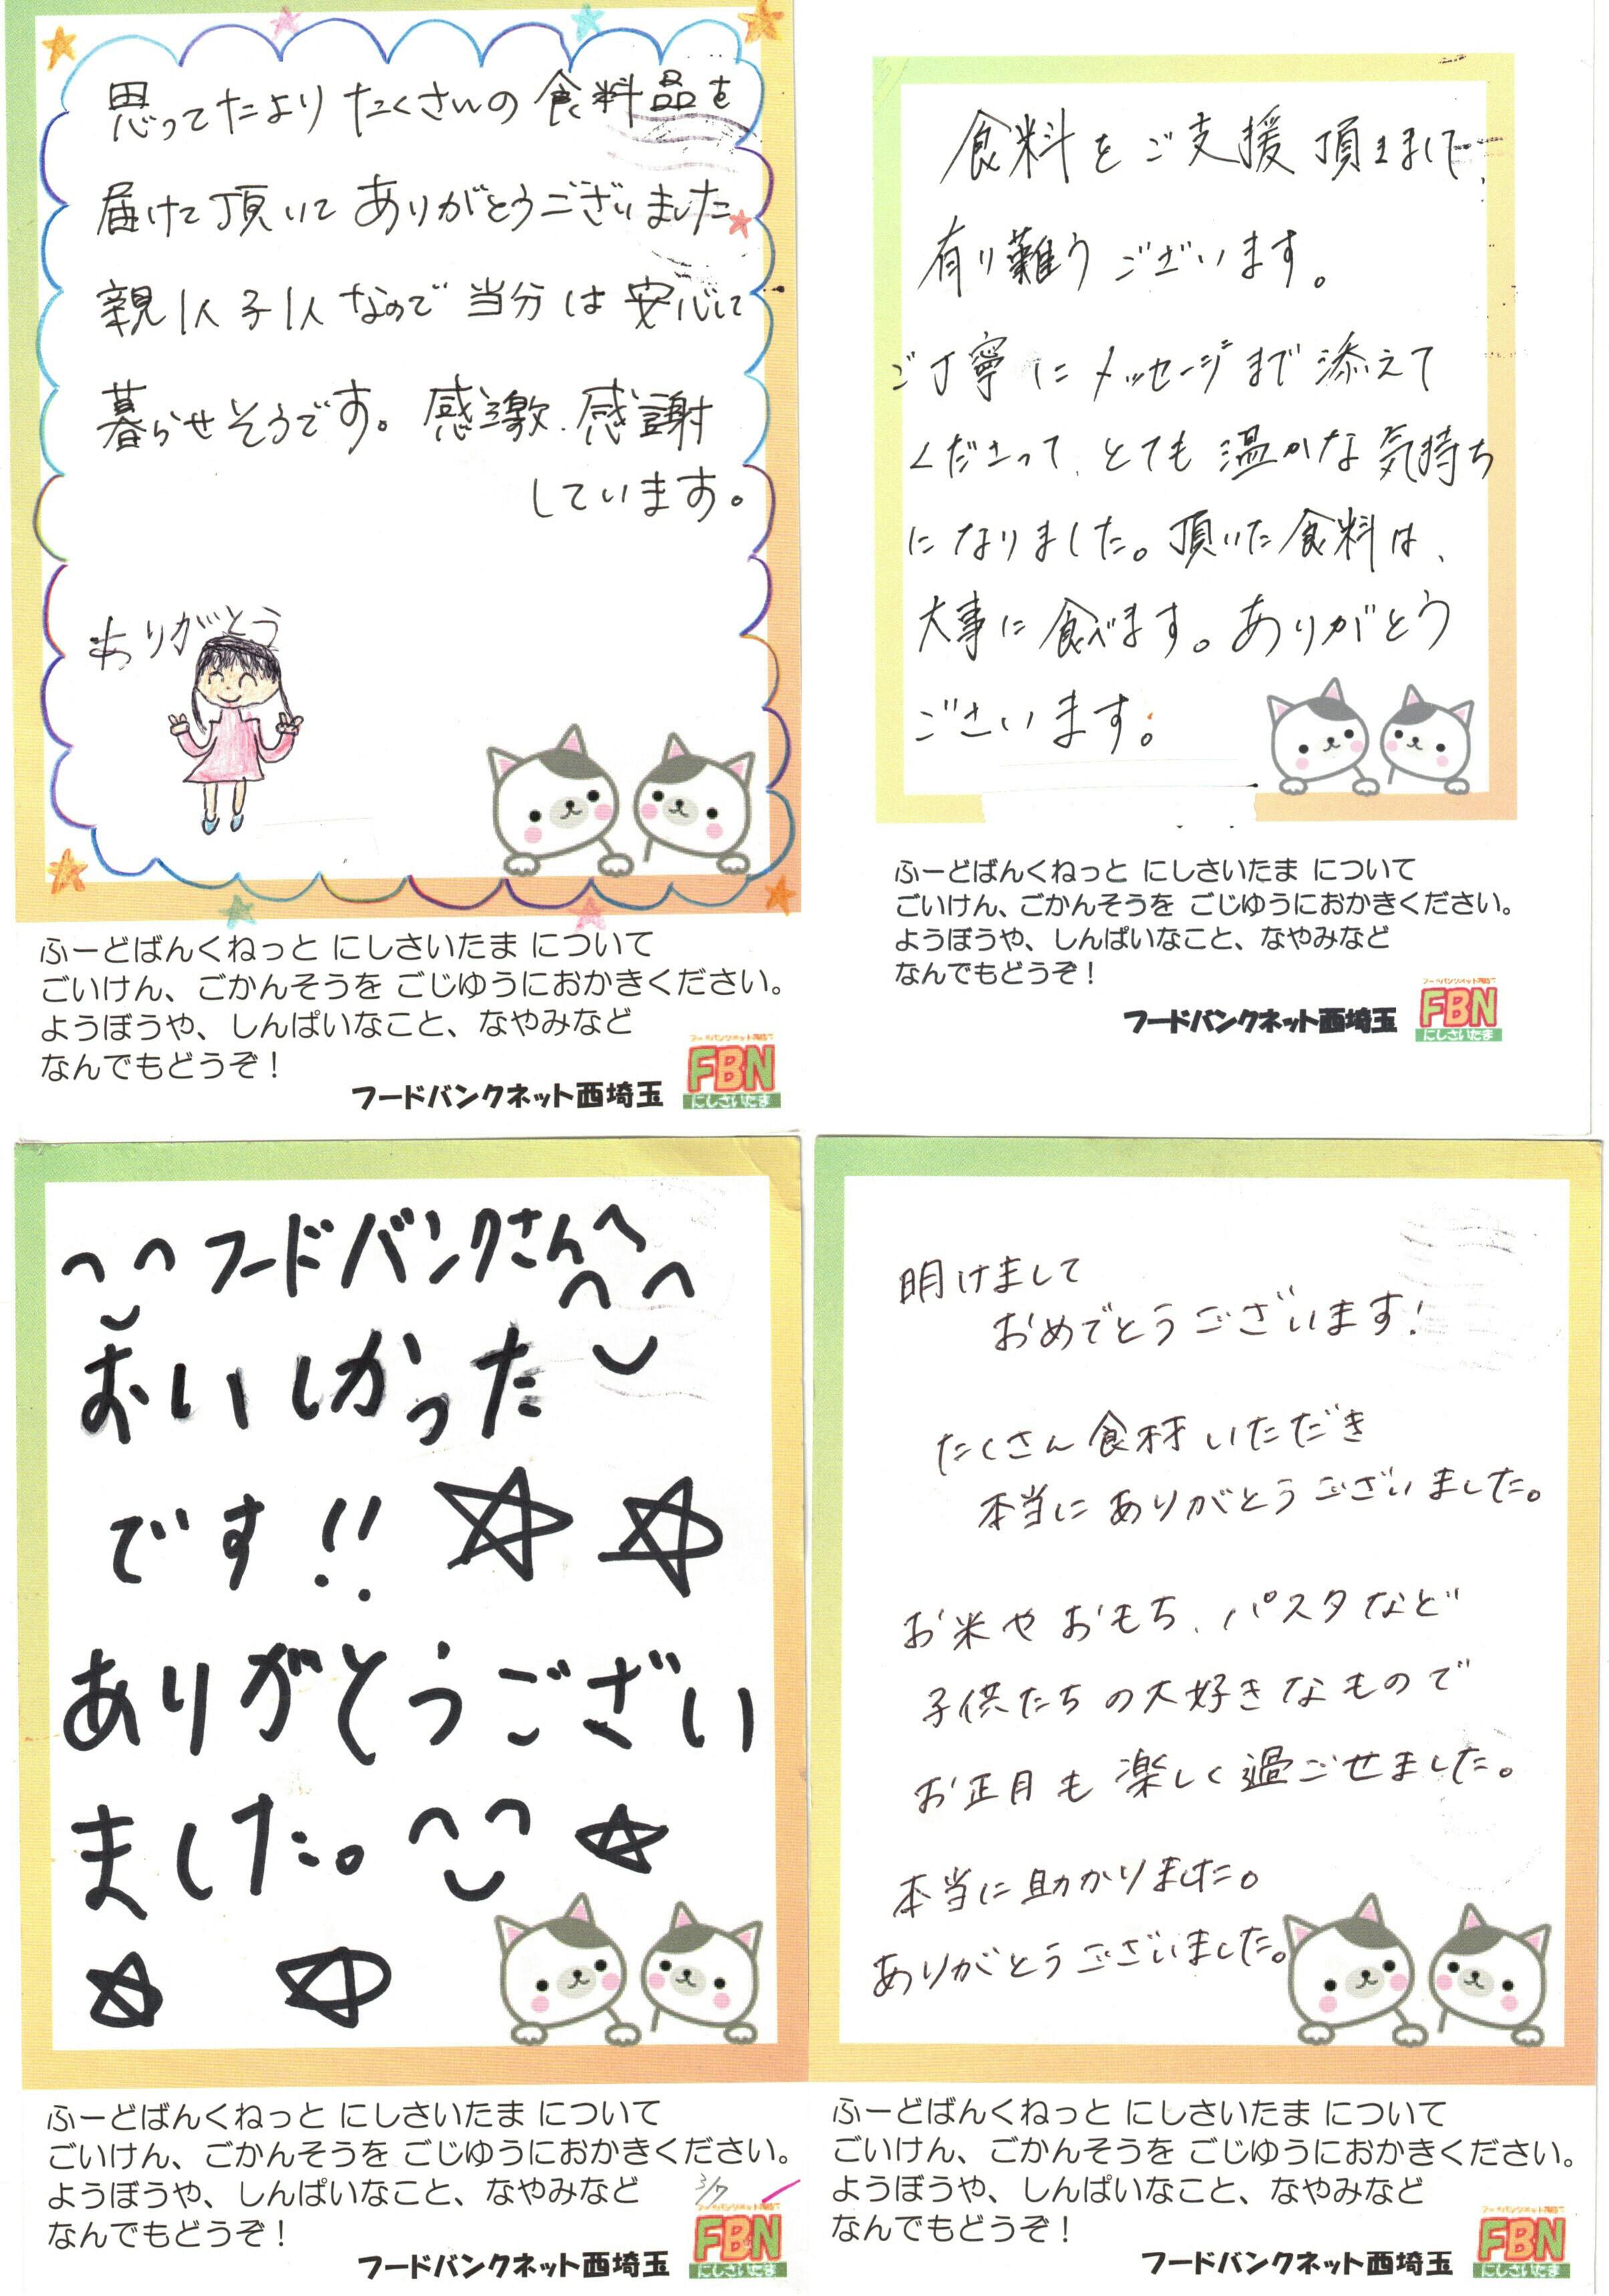 思ってたより たくさんの 食料品を
届けて頂いて ありがとうございました
親1人子1人なので 当分は 安心して
暮らせそうです。感激、感謝
しています。
ありがとう
ふーどばんくねっと にしさいたま について
ごいけん、ごかんそうを ごじゆうにおかきください。
ようぼうや、しんぱいなこと、なやみなど
なんでもどうぞ！
フードバンクネット西埼玉
FBN
にしさいたま
食料をご支援頂きまして、
有り難うございます。
ご丁寧にメッセージまで添えて
くださって、とても温かな気持ち
になりました。頂いた食料は、
大事に食べます。ありがとう
ごさいます。
ふーどばんくねっと にしさいたま について
ごいけん、ごかんそうを ごじゆうにおかきください。
ようぼうや、しんぱいなこと、なやみなど
なんでもどうぞ！
フードバンクネット西埼玉
FBN
にしさいたま
フードバンクさんへ
おいしかった
です!!
ありがとうござい
ました。
ふーどばんくねっと にしさいたま について
ごいけん、ごかんそうを ごじゆうにおかきください。
ようぼうや、しんぱいなこと、なやみなど
なんでもどうぞ！
フードバンクネット西埼玉
FBN
にしさいたま
明けまして
おめでとうございます!
たくさん食材いただき
本当にありがとうございました。
お米やおもち、パスタなど
子供たちの大好きなもので
お正月も楽しく過ごせました。
本当に助かりました。
ありがとうございました。
ふーどばんくねっと にしさいたま について
ごいけん、ごかんそうを ごじゆうにおかきください。
ようぼうや、しんぱいなこと、なやみなど
なんでもどうぞ！
フードバンクネット西埼玉
FBN
にしさいたま